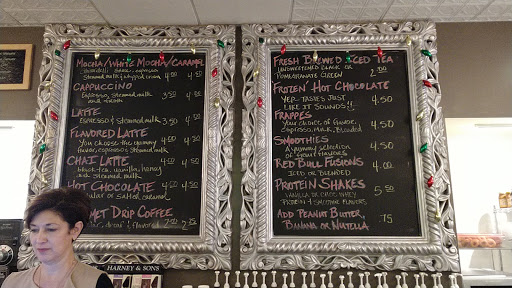 Mocha/White Mocha/Caramel
espresso
steamed milk, whipped cream 4.00 4.50
Cappuccino
Espresso, steamed milk 3.50 4.00
and foam
Latte
Espresso & steamed milk 3.50 4.00
Flavored Latte
You choose the yummy 4.00 4.50
flavor, espresso & steamed milk
Chai Latte
black tea, vanilla, honey 4.00 4.50
and steamed milk
Hot Chocolate 4.00 4.50
or salted caramel
met Drip Coffee
& flavored 2.00 2.75
Harney & Sons
Fresh Brewed Iced Tea
unsweetened black or 2.50
pomegranate green
Frozen Hot Chocolate
Yep, tastes just 4.50
like it sounds!!
Frappes
Your choice of flavor, 4.50
Espresso, Milk, Blended
Smoothies
A yummy selection 4.50
of fruit flavors
Red Bull Fusions
iced or blended 4.00
Protein Shakes
Vanilla or Choc whey 5.50
protein & smoothie flavors
Add Peanut Butter, .75
Banana or Nutella